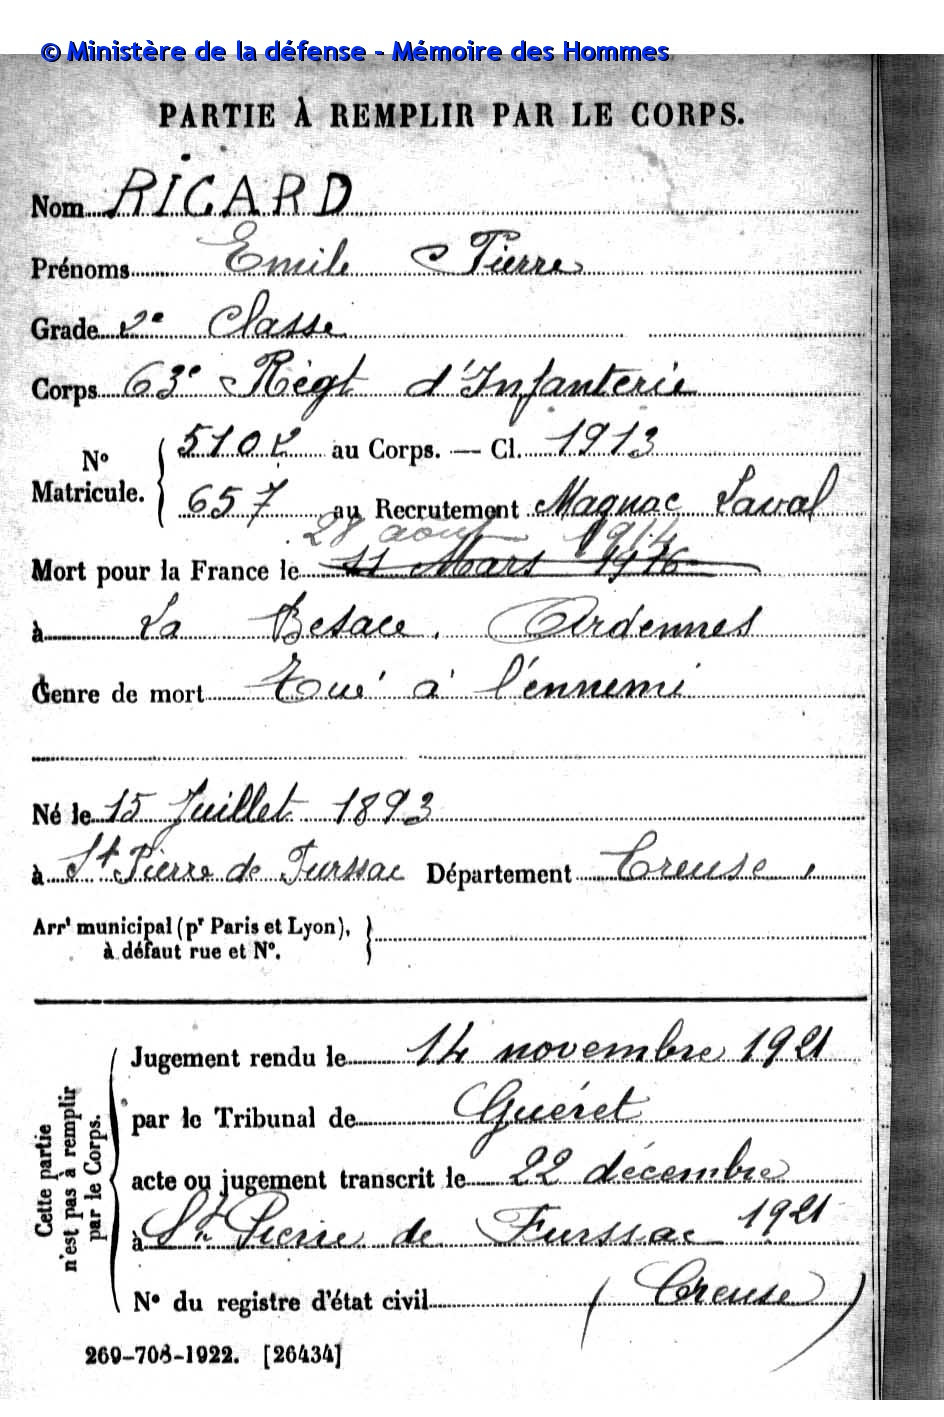 © Ministère de la défense - Mémoire des Hommes
PARTIE À REMPLIR PAR LE CORPS.
Nom RICARD
Prénoms Emile Pierre
Grade 2e Classe
Corps 63e Régt d'Infanterie
No Matricule. 5102 au Corps. — Cl. 1913
657 au Recrutement Magnac Laval
28 août 1914
Mort pour la France le 11 Mars 1916
à La Besace, Ardennes
Genre de mort Tué à l'ennemi
Né le 15 Juillet 1893
à St Pierre de Furssac Département Creuse,
Arrt municipal (pr Paris et Lyon),
à défaut rue et No.
Cette partie
n'est pas à remplir
par le Corps.
Jugement rendu le 14 novembre 1921
par le Tribunal de Guéret
acte ou jugement transcrit le 22 décembre
1921
à St Pierre de Furssac
No du registre d'état civil (Creuse)
269-708-1922. [26434]